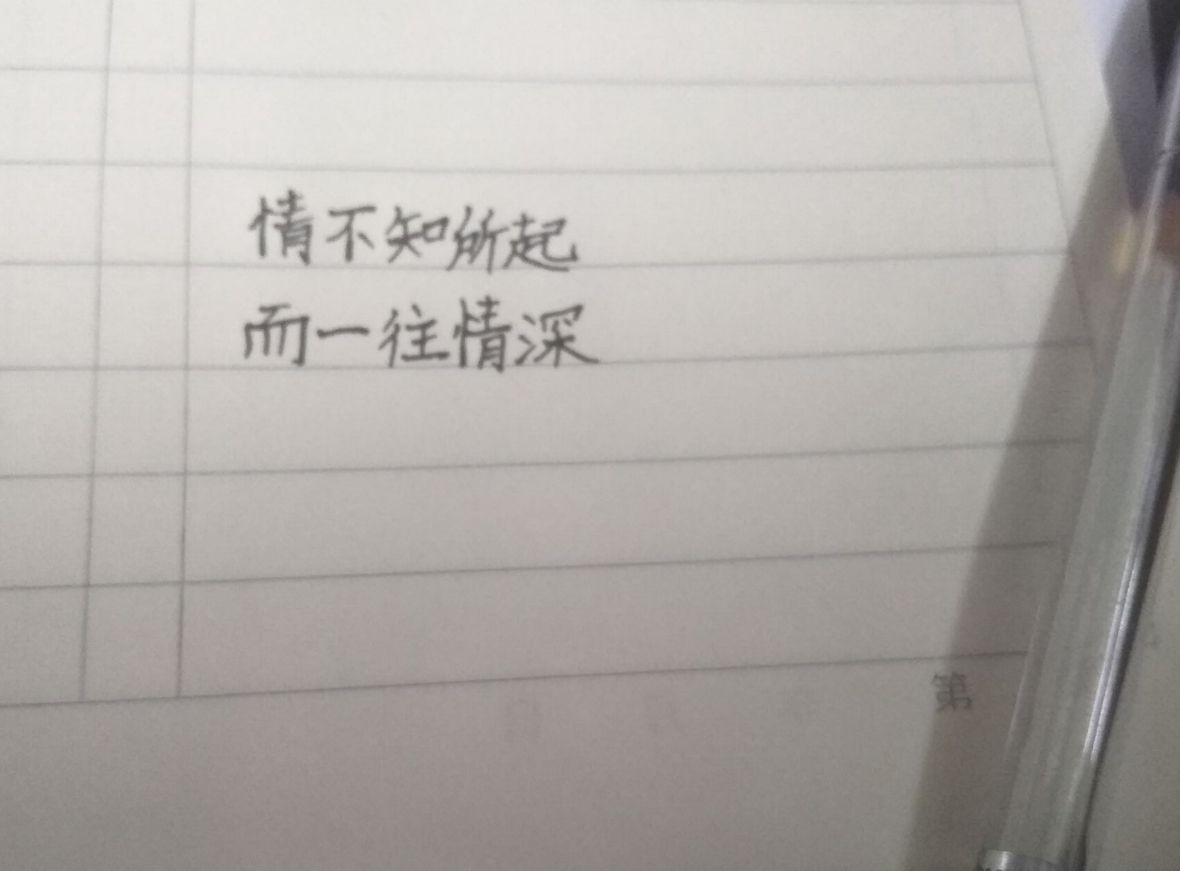 情不知所起
而一往情深
第